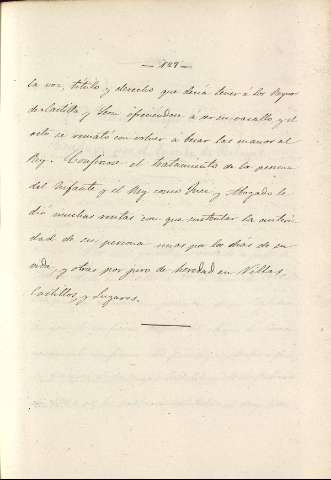 — 127 —
la voz, título y derecho que decía tener á los Reynos
de Castilla y Leon ofreciendose á ser su vasallo y el
acto se remató con volver á besar las manos al
Rey. Confirose el tratamiento de la persona
del Infante y el Rey como Juez y Abogado le
dió muchas rentas con que sustentar la autori
dad de su persona unas por los dias de su
vida, y otras por juro de heredad en Villas,
Castillos, y Lugares.